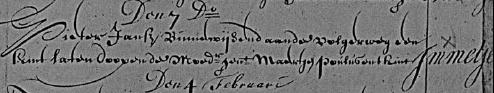 Den 7 Do
Pieter Jansz Binnewijsend aande volgerweg een
kint laten doopen de Moedr. Jent Maartje Poulus ont kint Jmmetje
Den 4 Februari